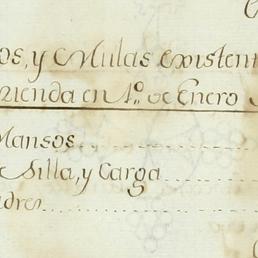 os, y Mulas Existent
zienda en 1º. de Enero
Mansos
e Silla, y Carga
adres